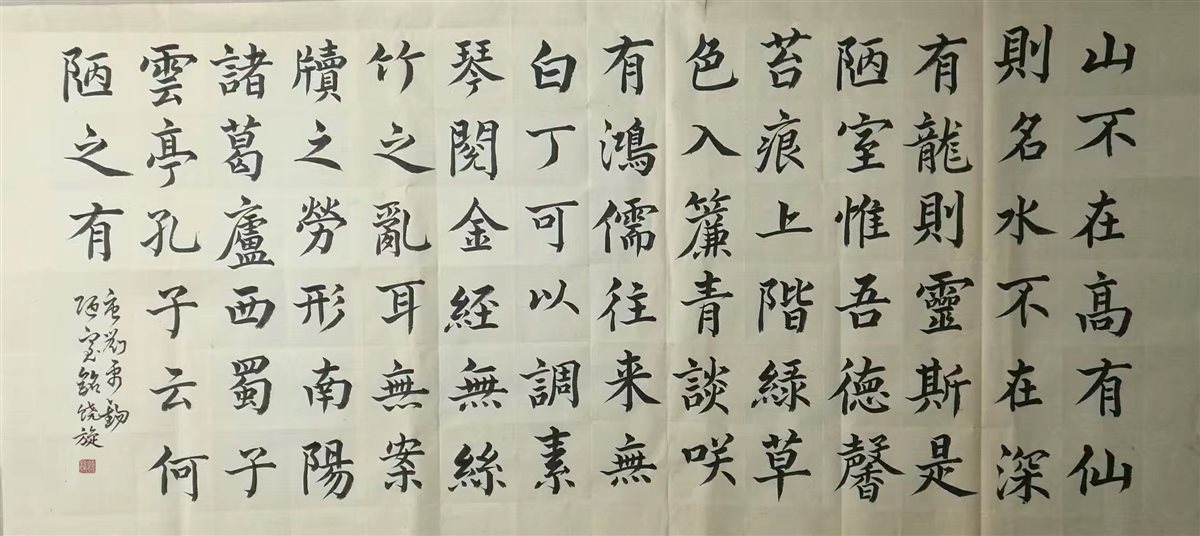 山不在高有仙
則名水不在深
有龍則靈斯是
陋室惟吾德馨
苔痕上階緑草
色入簾青談咲
有鴻儒往来無
白丁可以調素
琴閱金経無絲
竹之亂耳無案
牘之勞形南陽
諸葛廬西蜀子
雲亭孔子云何
陋之有
唐劉禹錫
陋室銘饶旋